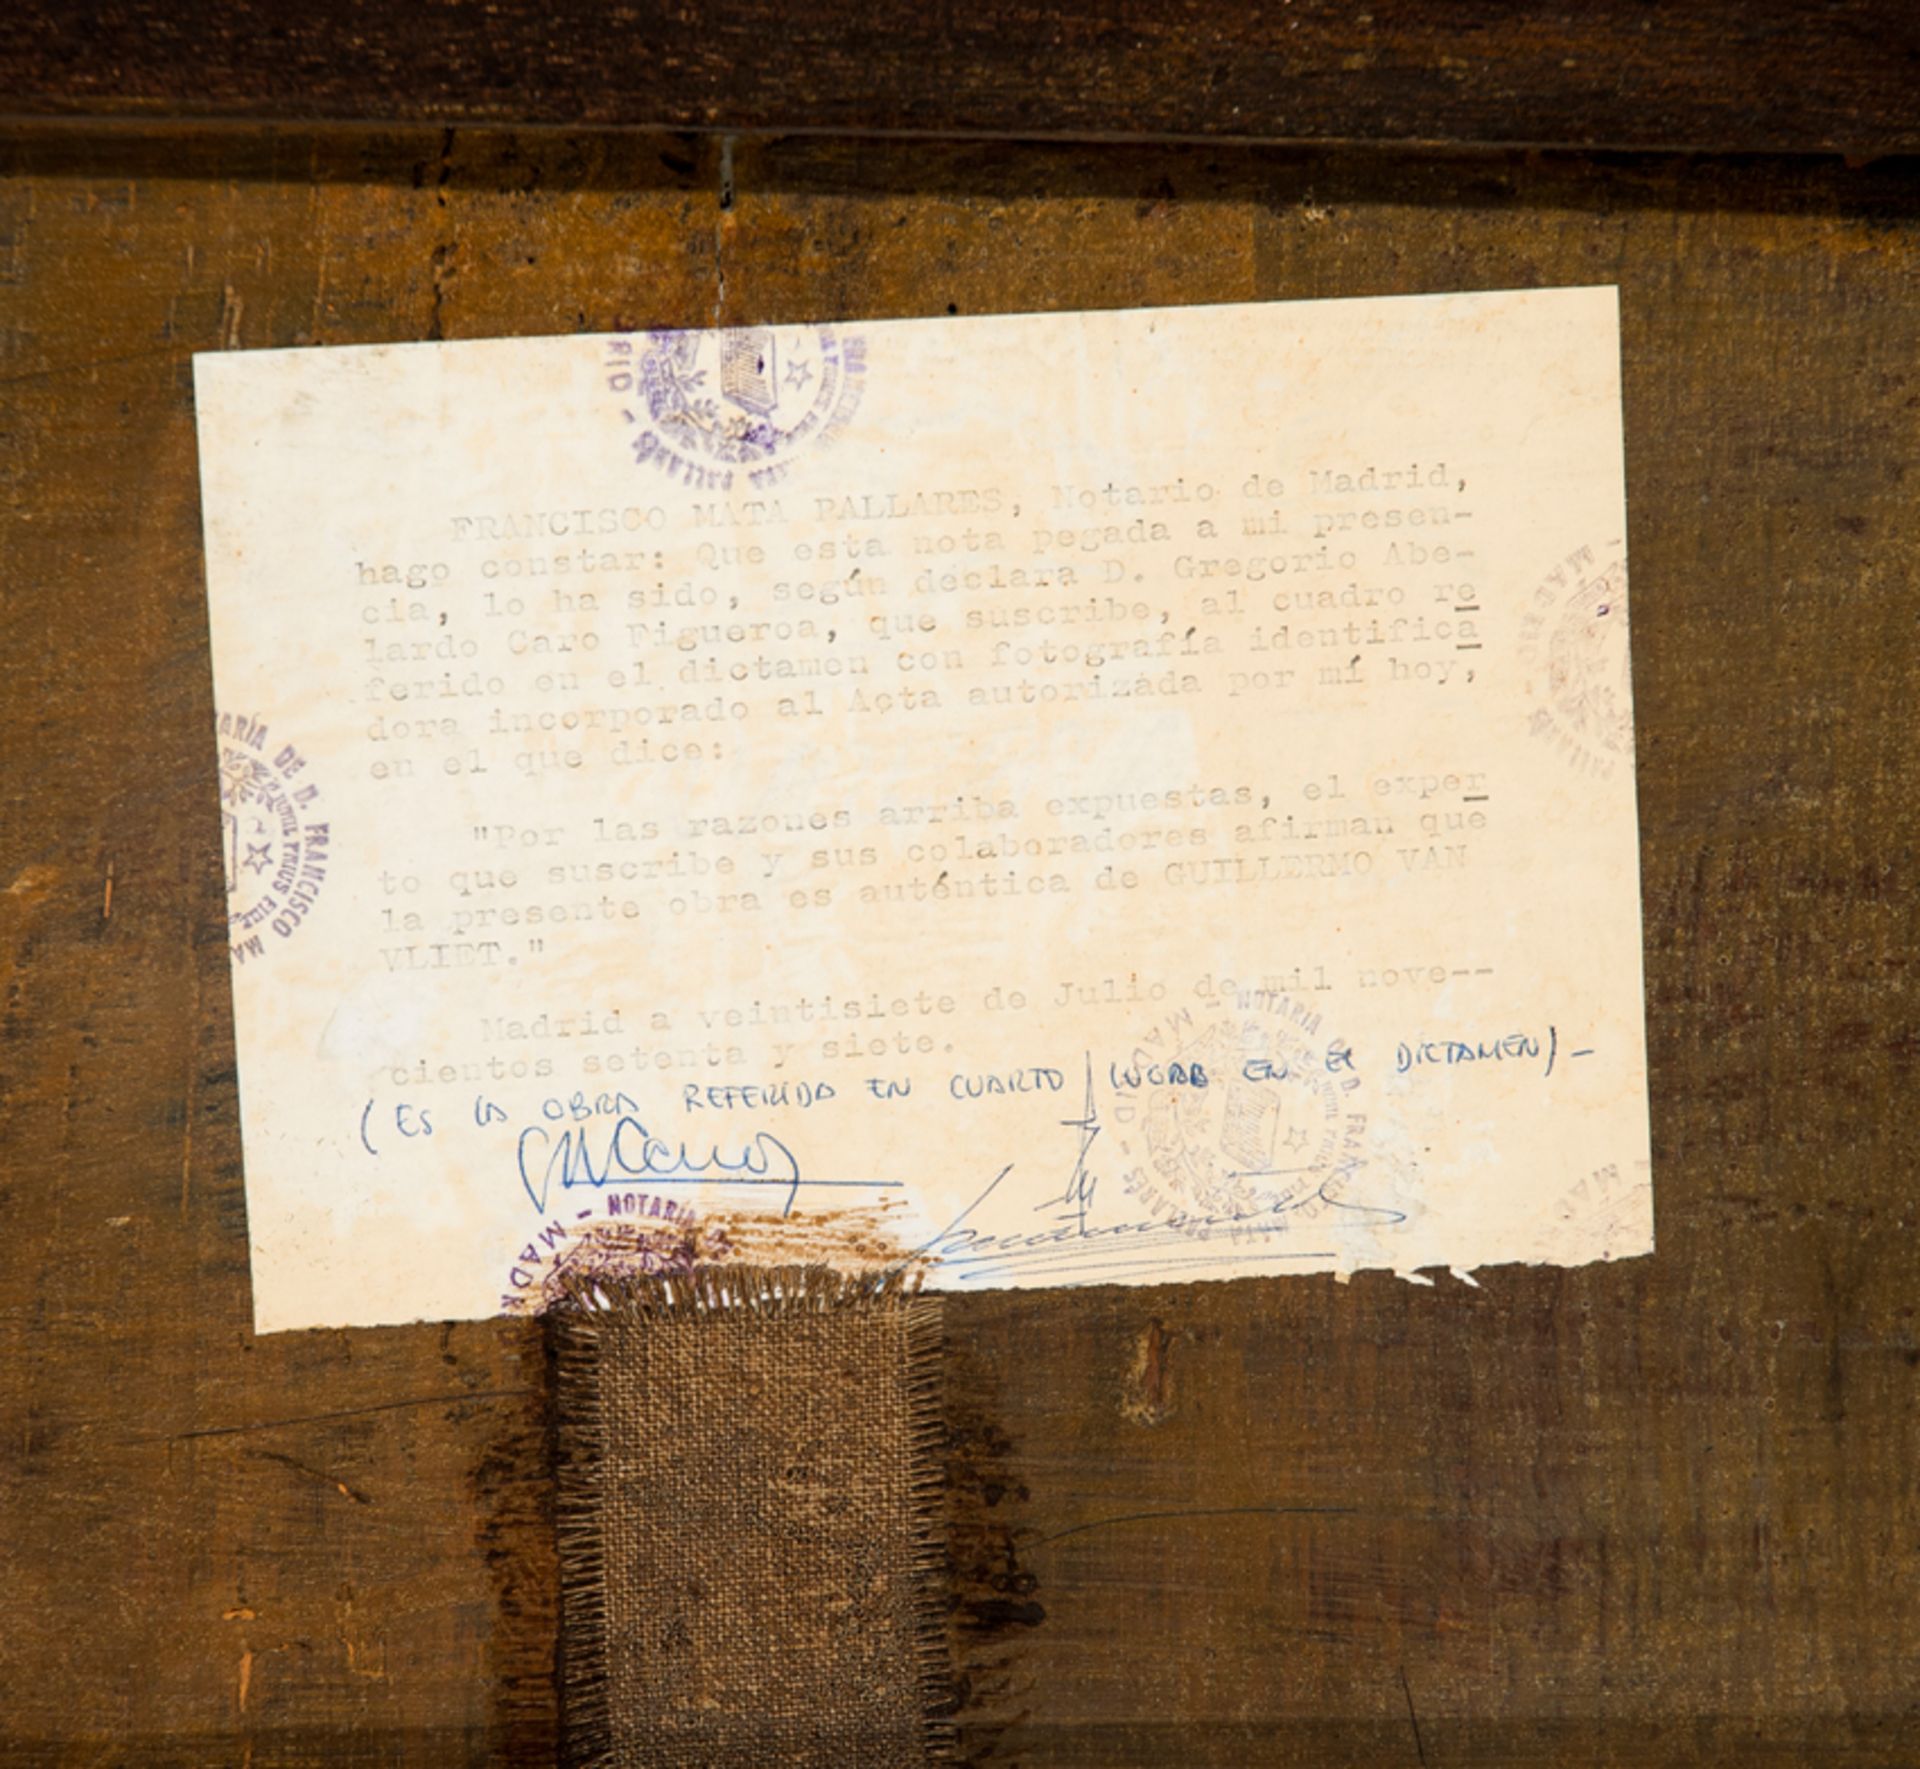 FRANCISCO MATA PALLARES, Notario de Madrid,
hago constar: Que esta nota pegada a mi presen-
cia, lo ha sido, según declara D. Gregorio Abe-
lardo Caro Figueroa, que suscribe, al cuadro re
ferido en el dictamen con fotografía identifica
dora incorporado al Acta autorizada por mí hoy,
en el que dice:
"Por las razones arriba expuestas, el exper
to que suscribe y sus colaboradores afirman que
la presente obra es auténtica de GUILLERMO VAN
VLIET."
Madrid a veintisiete de Julio de mil nove--
cientos setenta y siete.
(ES LA OBRA REFERIDA EN CUARTO LUGAR EN EL DICTAMEN)-
RID - PALLARÉS
NOTARÍA DE D. FRANCISCO MA
MADRID - PALLARÉS
- NOTARÍA DE D. FRANCISCO MATA PALLARÉS - MADRID
MADR - NOTARÍA
MAD